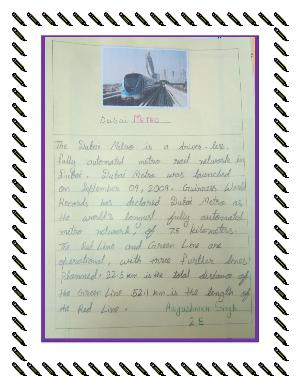 Dubai METRO
The Dubai Metro is a driver-less
fully automated metro rail network in
Dubai. Dubai Metro was launched
on September 09, 2009. Guinness World
Records has declared Dubai Metro as
the world's longest fully automated
metro network of 75 kilometers.
The Red Line and Green Line are
operational, with three further lines
planned. 22.5 km is the total distance of
the Green Line 52.1 km is the length of
the Red Line.
Singh
2 E